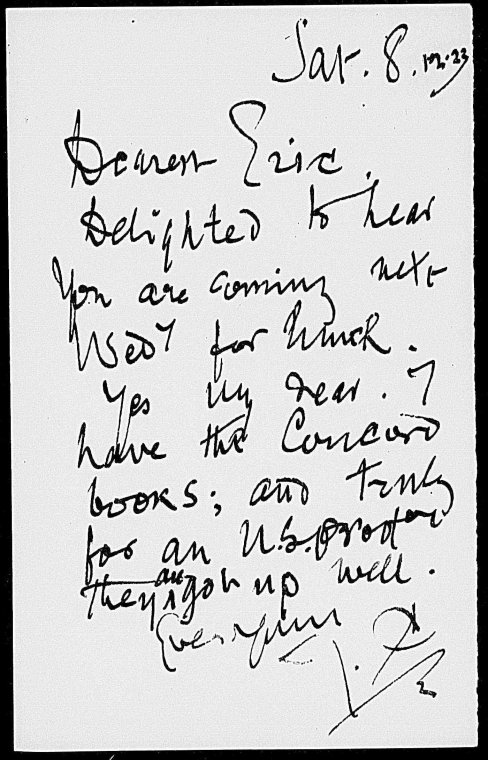 Sat. 8.12.23
Dearest Eric.
Delighted to hear
You are coming next
Wedy for lunch.
Yes my dear. I
have the Concord
books; and truly
for an U.S. product
They are got up well.
Ever yours